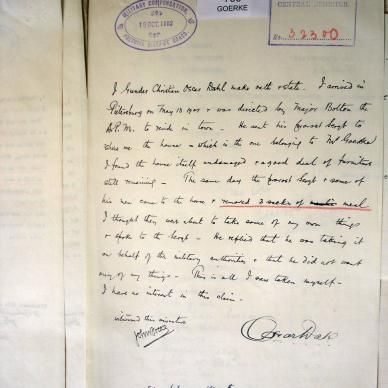 GOERKE
MILITARY COMPENSATION
18 OCT. 1902
CENTRAL REGISTER
No. 32300
I Gunder Christian Oscar Dahl make oath & state. I arrived in
Pietersburg on May 13 1901 & was directed by Major Bolton the
A.P.M. to reside in town. He sent his Sergt to
show me the house - which is the one belonging to Mr Goerke
I found the house itself undamaged & a good deal of furniture
still remaining - The same day the Sergt & some of
his men came to the house & removed 3 sacks of meal
I thought they were about to take some of my own things
& spoke to the Sergt - He replied that he was taking it
on behalf of the military authorities & that he did not want
any of my things - This is all I saw taken myself -
I have no interest in this claim -
Oscar Dahl